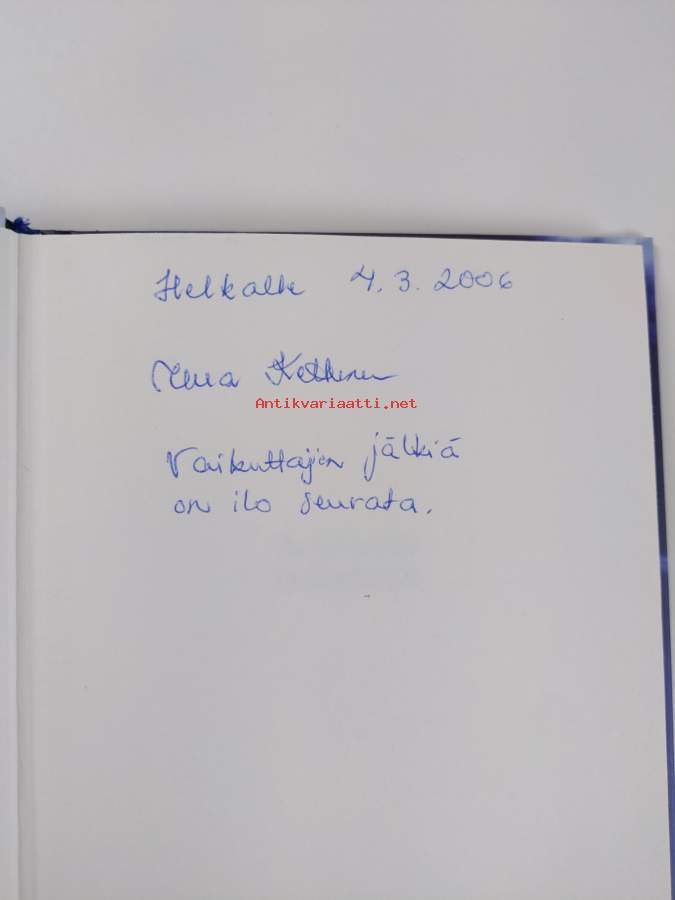 Helkalle 4.3.2006
Kettunen
Antikvariaatti.net
Vaikuttajien jälkiä
on ilo seurata.